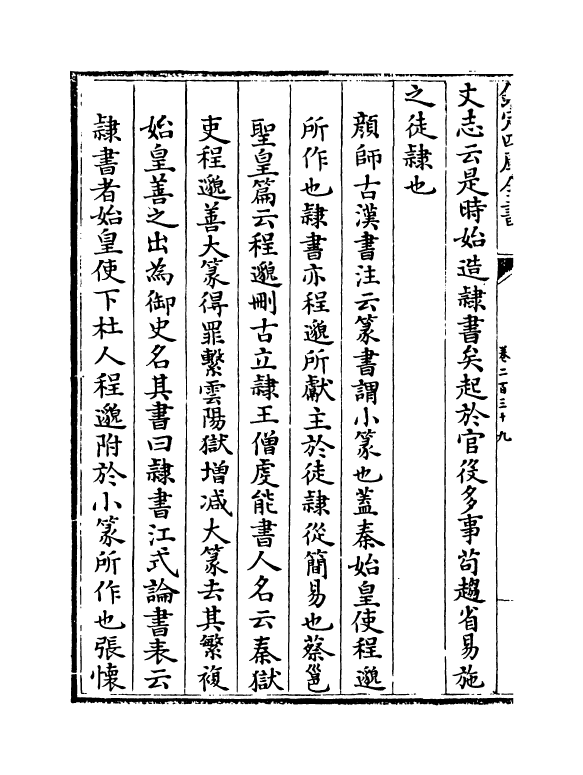 欽定四庫全書
卷二百三十九
文志云是時始造隸書矣起於官役多事苟趨省易施
之徒隸也
顔師古漢書注云篆書謂小篆也蓋秦始皇使程邈
所作也隸書亦程邈所獻主於徒隸從簡易也蔡邕
聖皇篇云程邈刪古立隸王僧虔能書人名云秦獄
吏程邈善大篆得罪繫雲陽獄增减大篆去其繁複
始皇善之出為御史名其書曰隸書江式論書表云
隸書者始皇使下杜人程邈附於小篆所作也張懷